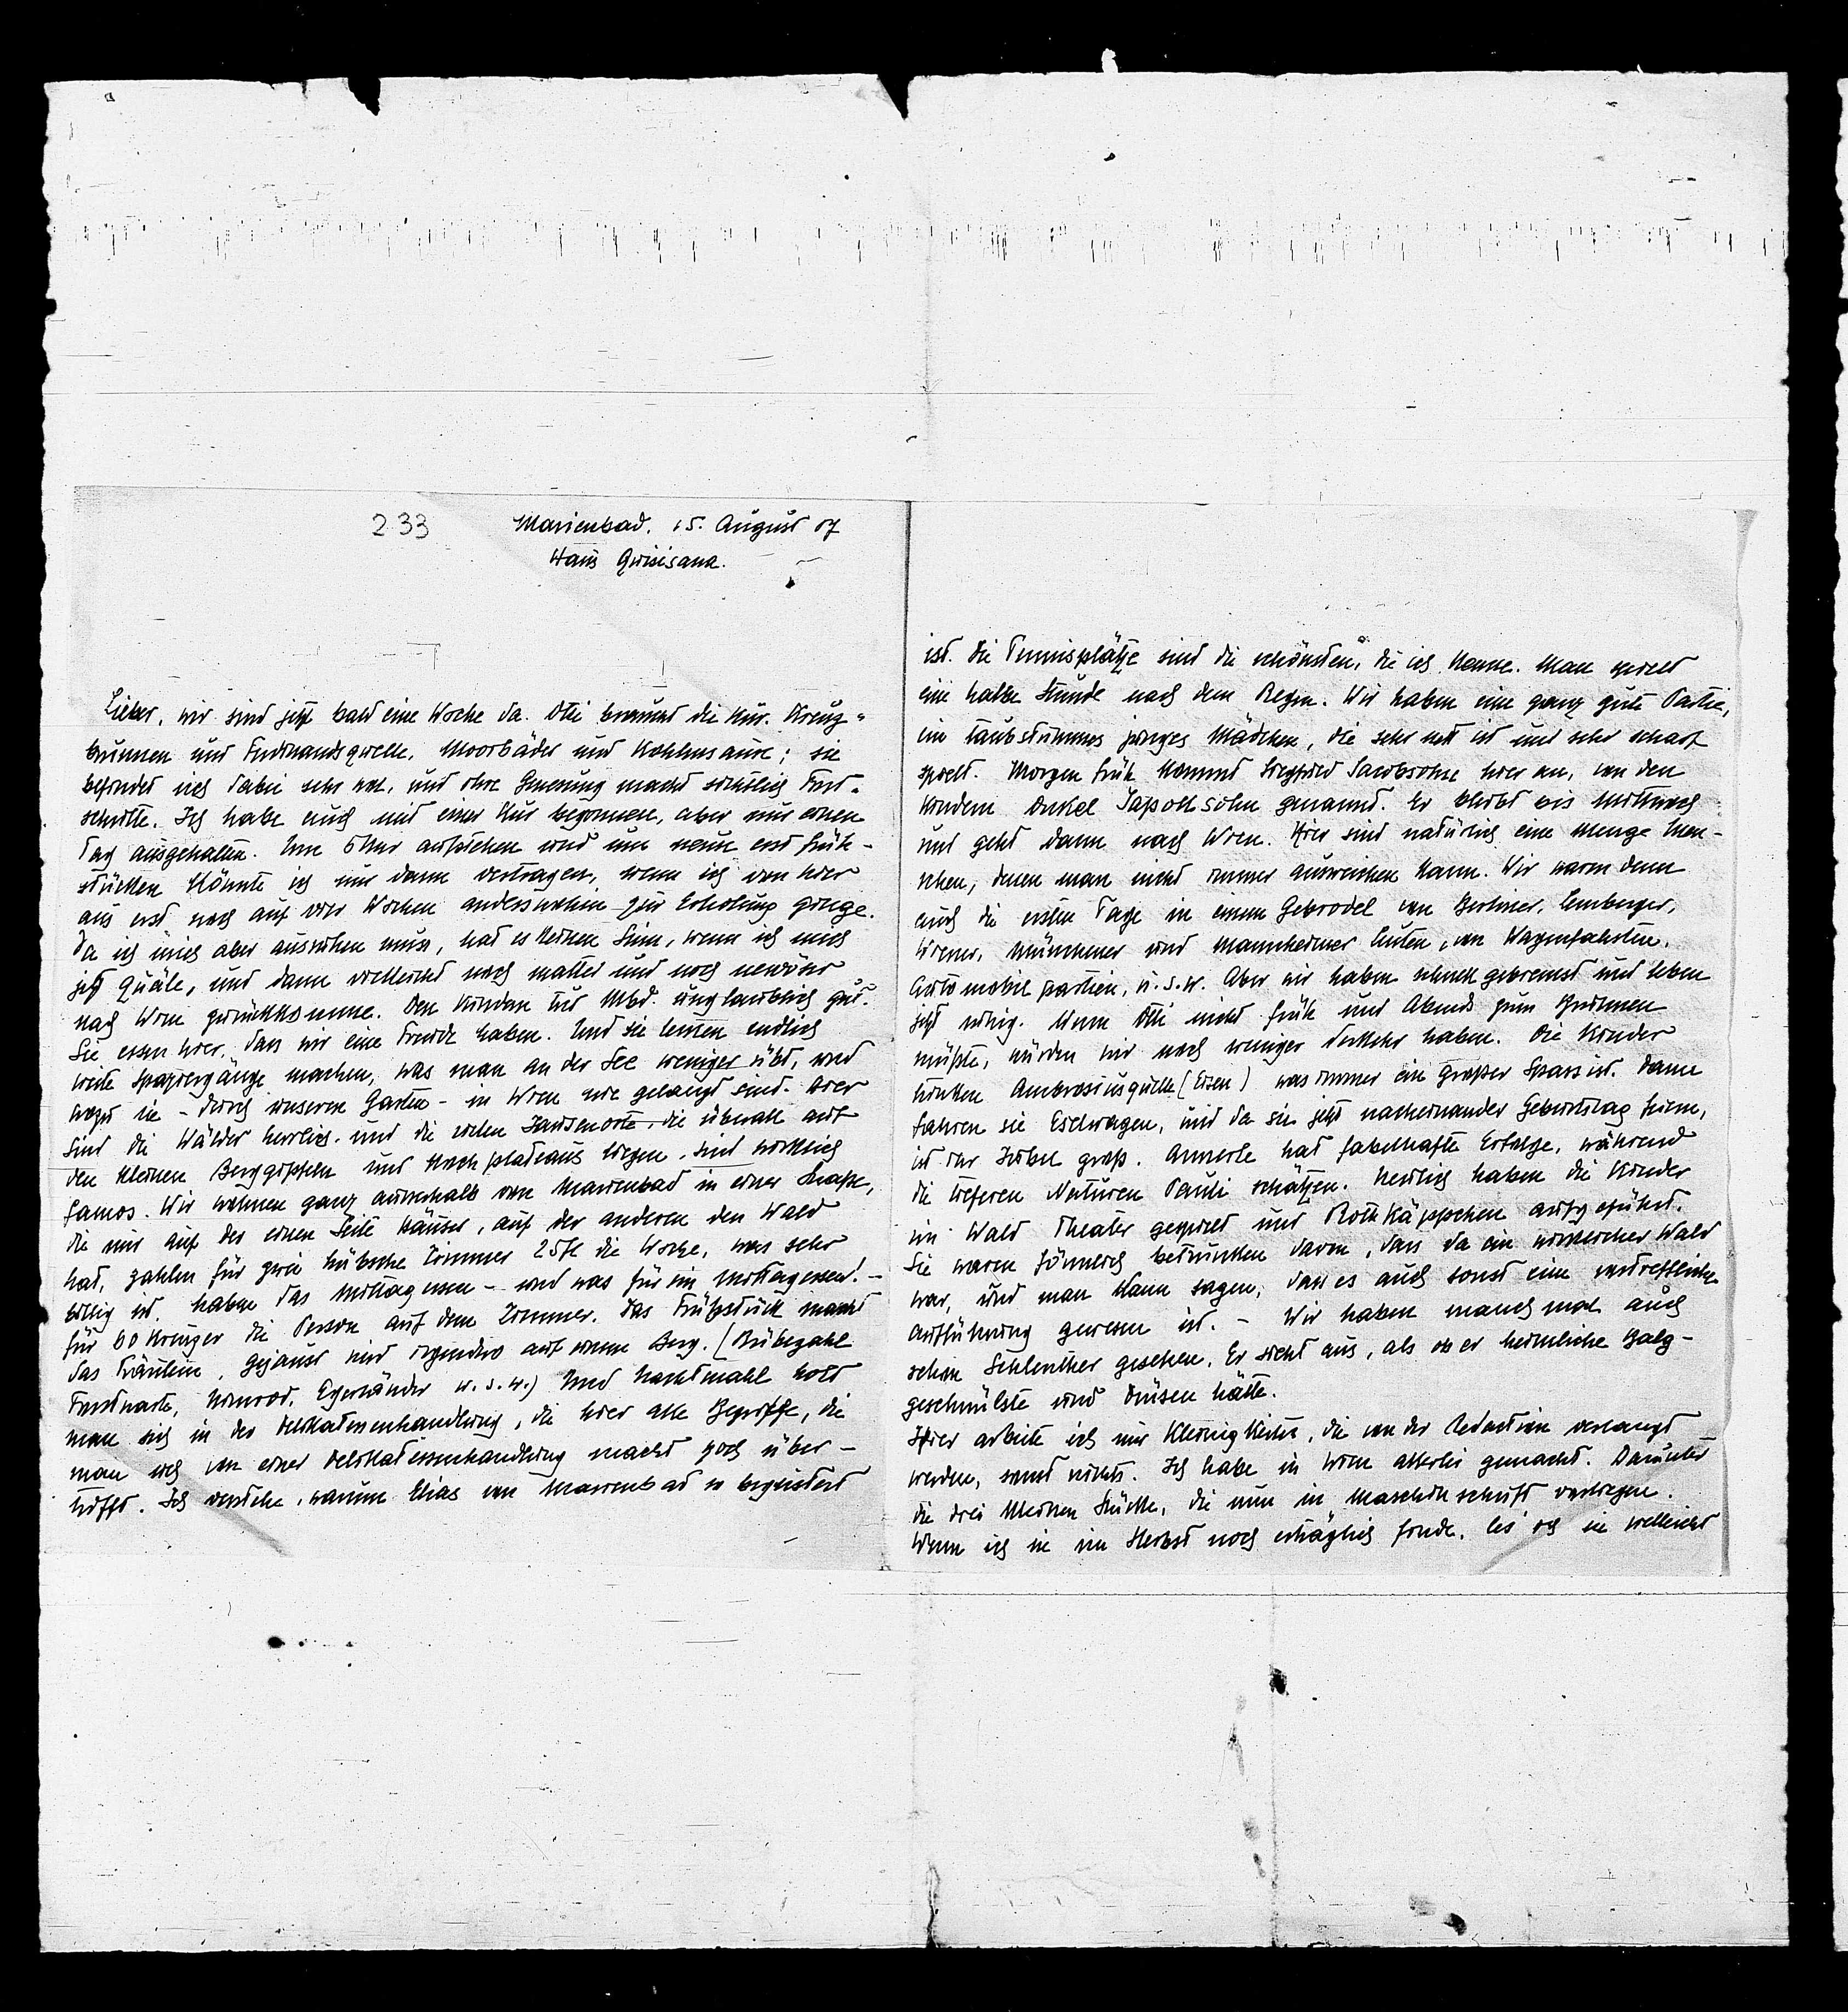 233
Marienbad. 15. August 07
Haus Quisisana.
Lieber, wir sind jetzt bald eine Woche da. Otti braucht die Kur. Kreuz-
brunnen und Ferdinandsquelle, Moorbäder und Kohlensäure; sie
befindet sich dabei sehr wol, und ihre Genesung macht sichtlich Fort-
schritte. Ich habe auch mit einer Kur begonnen, aber nur einen
Tag ausgehalten. Um 6 Uhr aufstehen und um neun erst früh-
stücken könnte ich nur dann vertragen, wenn ich von hier
aus erst noch auf vier Wochen anderswohin zur Erholung ginge.
Da ich mich aber ausruhen muss, hat es keinen Sinn, wenn ich mich
jetzt quäle, und dann vielleicht noch matter und noch nervöser
nach Wien zurückkomme. Den Kindern tut Mbd. unglaublich gut.
Sie essen hier, dass wir eine Freude haben. Und sie lernen endlich
weite Spaziergänge machen, was man an der See weniger übt, und
wozu sie – durch unseren Garten – in Wien nie gelangt sind. Hier
sind die Wälder herrlich. und die vielen Jausenorte, die überall auf
den kleinen Berggipfeln und Hochplateaus liegen, sind wirklich
famos. Wir wohnen ganz ausserhalb von Marienbad in einer Straße,
die nur auf der einen Seite Häuser, auf der anderen den Wald
hat, zahlen für zwei hübsche Zimmer 25 fl die Woche, was sehr
billig ist. haben das Mittagessen – und was für ein Mittagessen! –
für 60 Kreuzer die Person auf dem Zimmer. Das Frühstück macht
das Fräulein, gejaust wird irgendwo auf einem Berg. (Rübezahl
Forstwarte, Nimrod, Egerländer u. s. w.) Und Nachtmahl holt
man sich in der Delikatessenhandlung, die hier alle Begriffe, die
man sich von einer Delikatessenhandlung macht hoch über-
trifft. Ich verstehe, warum Elias von Marienbad so begeistert
ist. Die Tennisplätze sind die schönsten, die ich kenne. Man spielt
eine halbe Stunde nach dem Regen. Wir haben eine ganz gute Partie,
ein taubstummes junges Mädchen, die sehr nett ist und sehr scharf
spielt. Morgen früh kommt Siegfried Jacobsohn hier an, von den
Kindern Onkel Japoksohn genannt. Er bleibt bis Mittwoch
und geht dann nach Wien. Hier sind natürlich eine Menge Men-
schen, denen man nicht immer ausweichen kann. Wir waren denn
auch die ersten Tage in einem Gebrodel von Berliner, Lemberger,
Wiener, Münchener und Mannheimer Leuten, von Wagenfahrten,
Automobilpartien, u. s. w. Aber wir haben schnell gebremst und leben
jetzt ruhig. Wenn Otti nicht früh und Abends zum Brunnen
müßte, würden wir noch weniger Verkehr haben. Die Kinder
trinken Ambrosiusquelle (Eisen) was immer ein großer Spass ist. Dann
fahren sie Eselwagen, und da sie jetzt nacheinander Geburtstag feiern,
ist ihr Jubel groß. Annerle hat fabelhafte Erfolge, während
die tieferen Naturen Pauli schätzen. Neulich haben die Kinder
im Wald Theater gespielt und Rothkäppchen aufgeführt.
Sie waren förmlich betrunken davon, dass da ein wirklicher Wald
war, und man kann sagen, dass es auch sonst eine vortreffliche
Aufführung gewesen ist. – Wir haben manchmal auch
schon Schlenther gesehen. Er sieht aus, als ob er heimliche Balg-
geschwülste und Drüsen hätte.
Hier arbeite ich nur Kleinigkeiten, die von der Redaction verlangt
werden, sonst nichts. Ich habe in Wien allerlei gemacht. Darunter
die drei kleinen Stücke, die nun in Maschinschrift vorliegen.
Wenn ich sie im Herbst noch erträglich finde, les' ich sie vielleicht